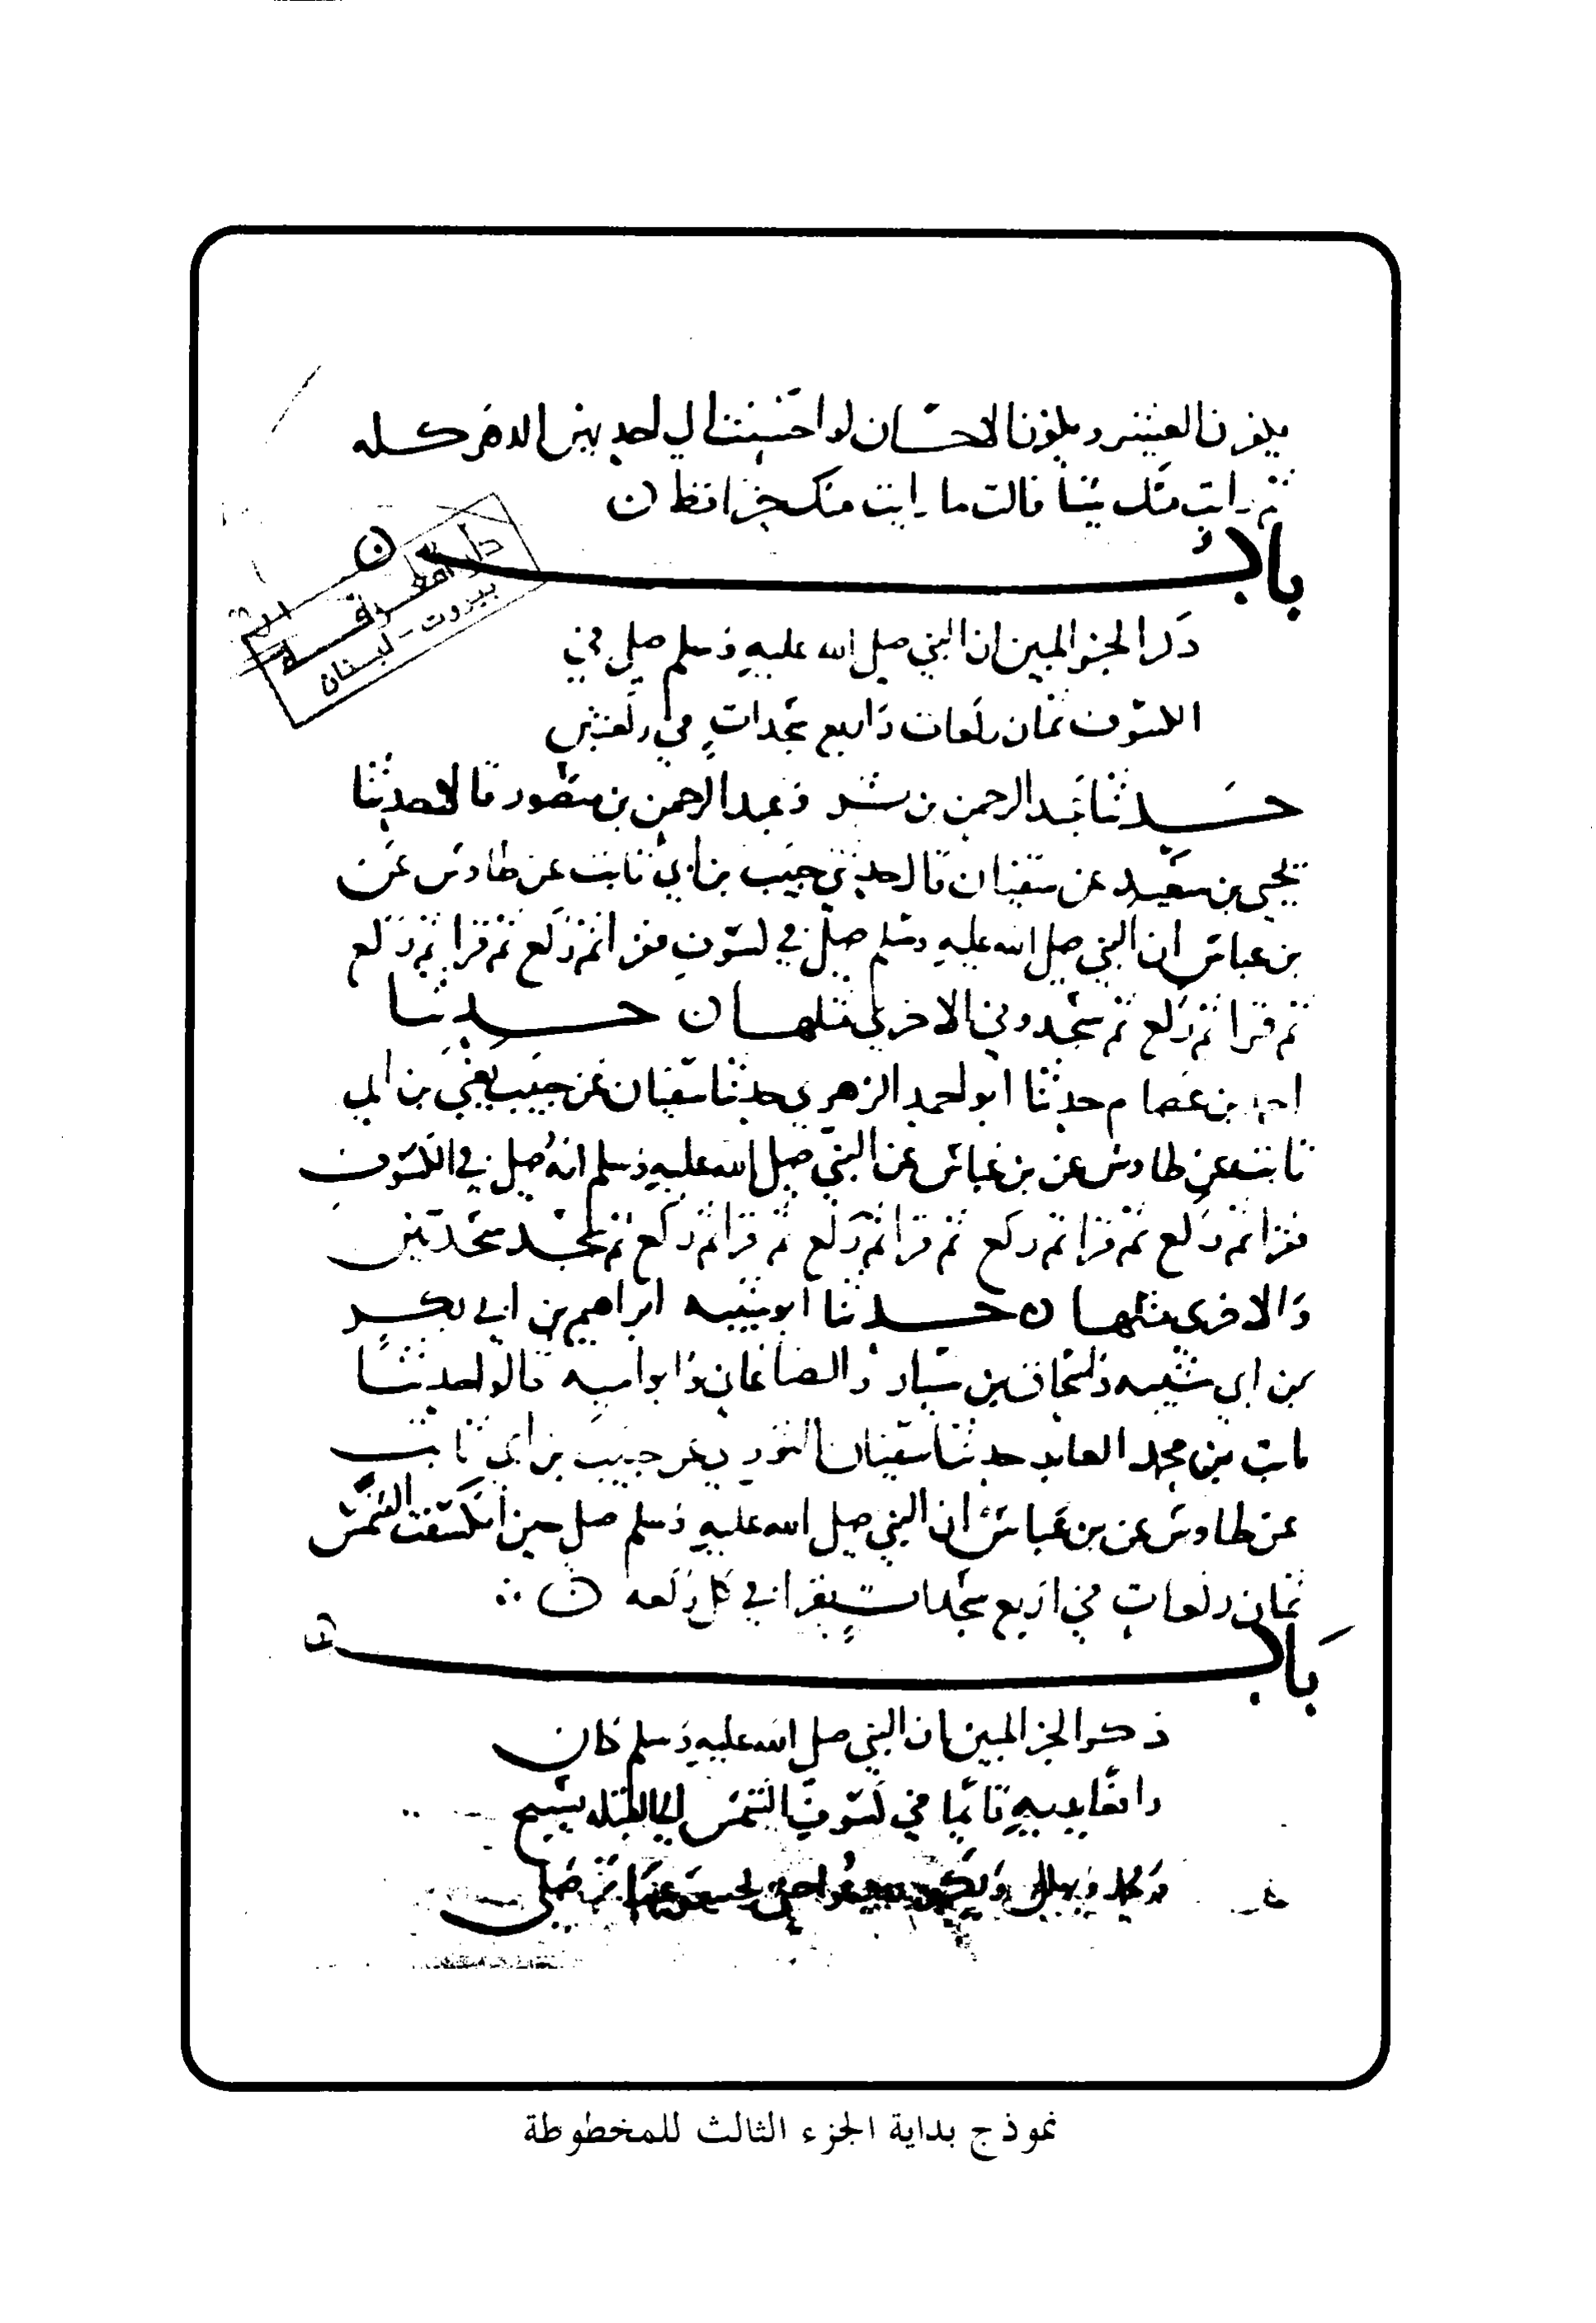 يكفرن العشير ويكفرن الاحسان لو احسنت الي احديهن الدهر كله
ثم رات منك شيئا قالت ما رايت منك خيرا قط ن
باب
ذكر الخبر المبين ان النبي صلى الله عليه وسلم صلى في
الكسوف ثمان ركعات واربع سجدات في ركعتين
حدثنا عبد الرحمن بن بشر وعبد الرحمن بن منصور قالا حدثنا
يحيى بن سعيد عن سفيان قال حدثني حبيب بن ابي ثابت عن طاوس عن
بن عباس ان النبي صلى الله عليه وسلم صلى في كسوف فقرا ثم ركع ثم قرا ثم ركع
ثم قرا ثم ركع ثم سجد وفي الاخرى مثلها ن حدثنا
احمد بن عصام حدثنا ابو احمد الزهري حدثنا سفيان عن حبيب يعني بن ابي
ثابت عن طاوس عن بن عباس عن النبي صلى الله عليه وسلم انه صلى في الكسوف
فقرا ثم ركع ثم قرا ثم ركع ثم قرا ثم ركع ثم قرا ثم ركع ثم سجد سجدتين
والاخرى مثلها ن حدثنا ابو شيبه ابراهيم بن ابي بكر
بن ابي شيبه واسحاق بن سيار والصاغاني وابو اميه قالوا حدثنا
ثابت بن محمد العابد حدثنا سفيان الثوري عن حبيب بن ابي ثابت
عن طاوس عن بن عباس ان النبي صلى الله عليه وسلم صلى حين انكسفت الشمس
ثمان ركعات في اربع سجدات يقرا في كل ركعه ن
باب
ذكر الخبر المبين ان النبي صلى الله عليه وسلم كان
رافعا يديه قائما في كسوف الشمس الى القبله يسبح
ويهلل ويكبر حتى عنها ثم صلى
دار المعرفة
بيروت - لبنان
نموذج بداية الجزء الثالث للمخطوطة